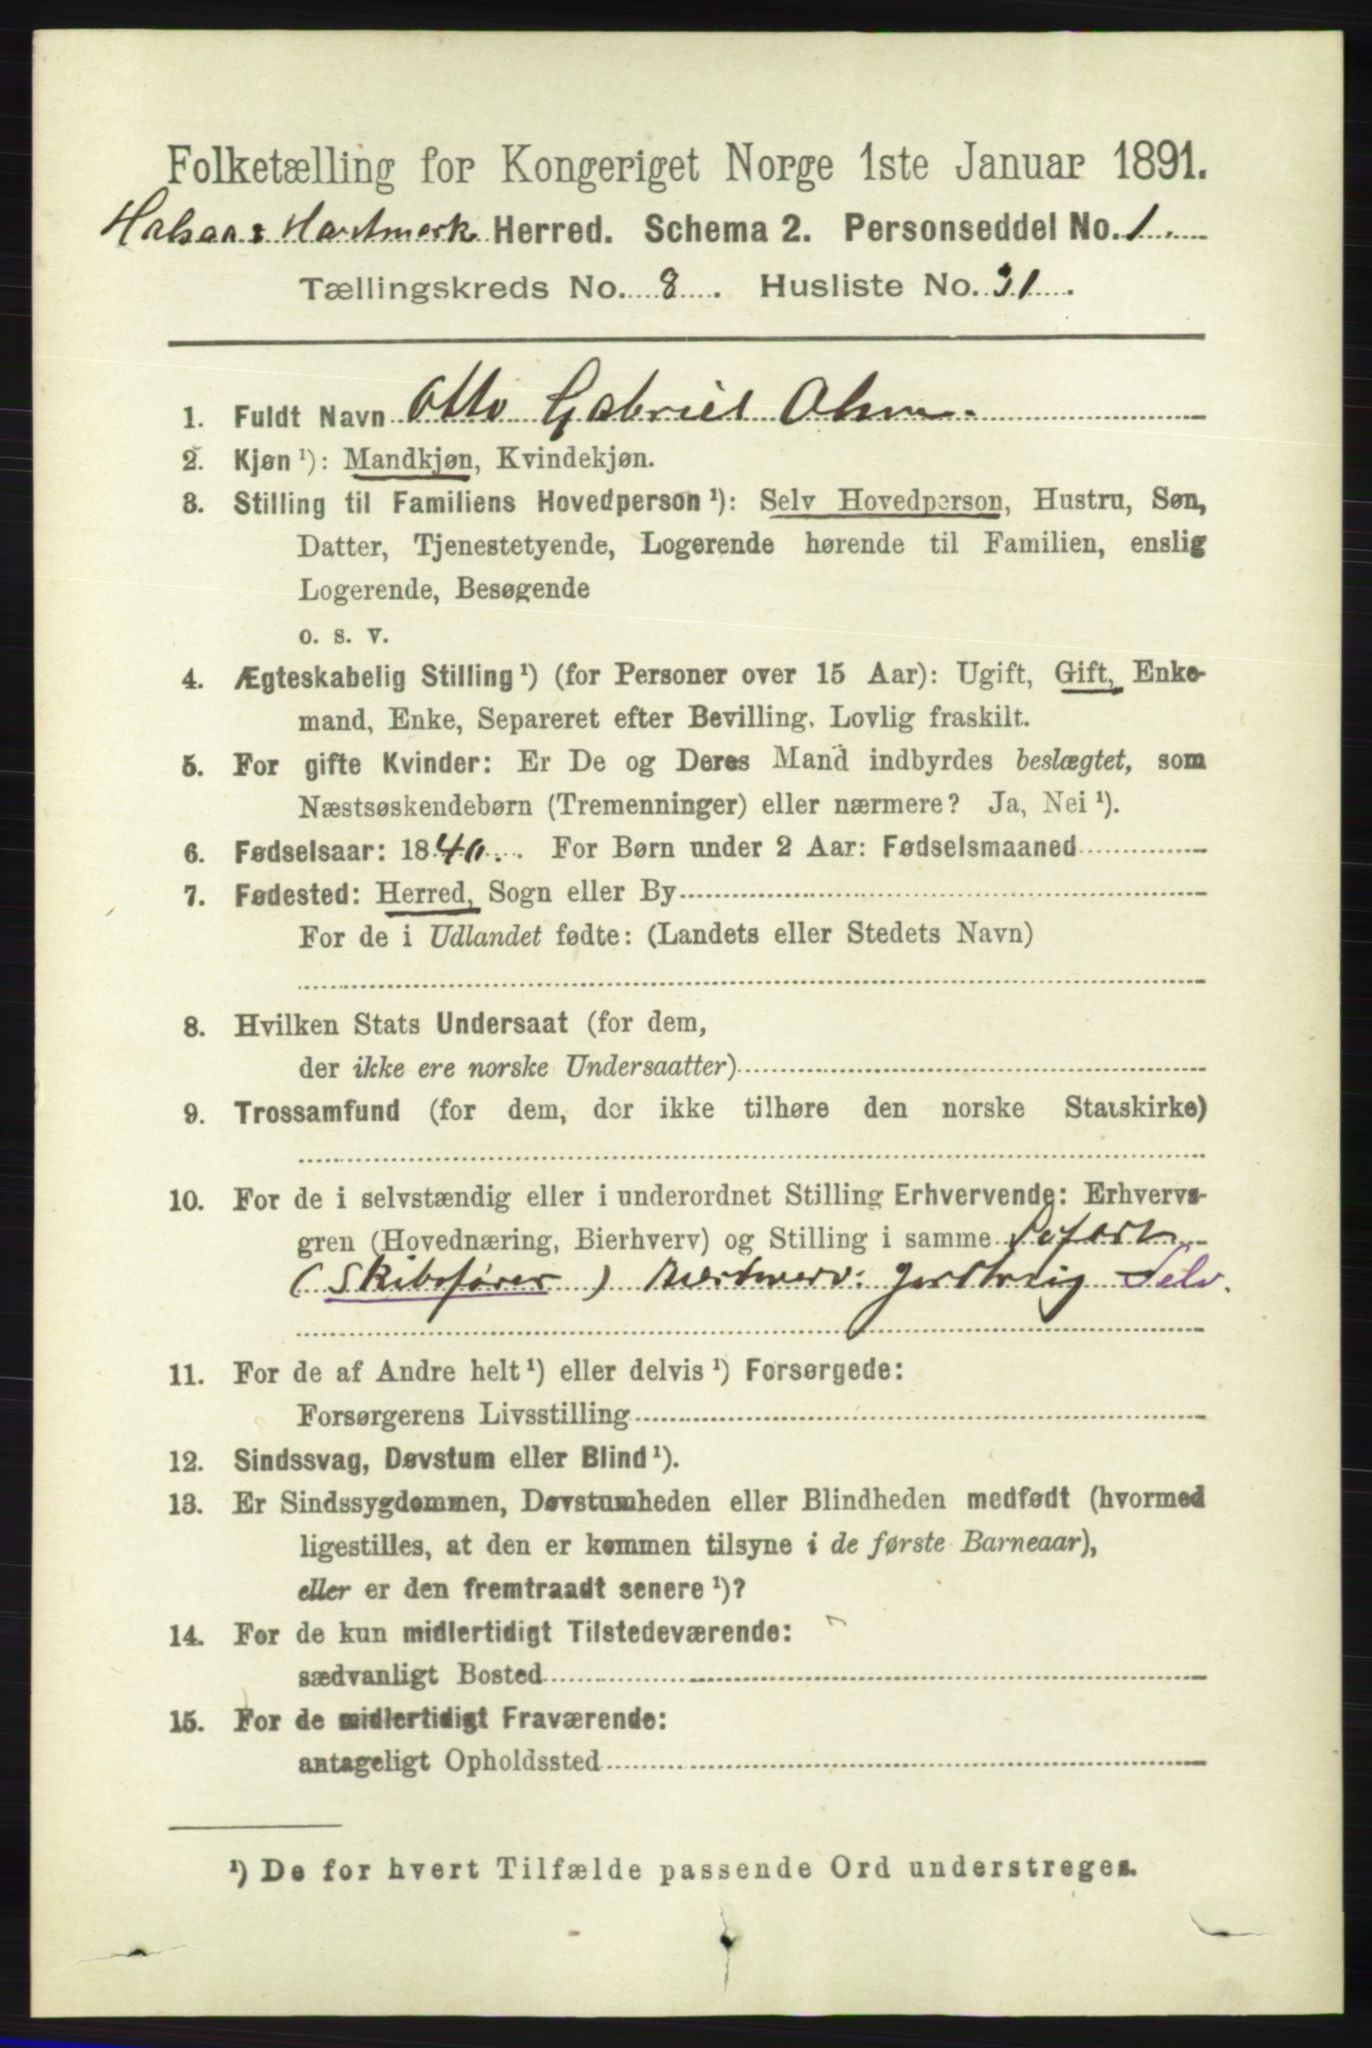 Folketælling for Kongeriget Norge 1ste Januar 1891.
Halsaa & Hartmerk Herred. Schema 2. Personseddel No. 1.
Tællingskreds No. 8. Husliste No. 31.
1. Fuldt Navn Otto Gabriel Olsen.
2. Kjøn ¹): Mandkjøn, Kvindekjøn.
3. Stilling til Familiens Hovedperson ¹): Selv Hovedperson, Hustru, Søn,
Datter, Tjenestetyende, Logerende hørende til Familien, enslig
Logerende, Besøgende
o. s. v.
4. Ægteskabelig Stilling ¹) (for Personer over 15 Aar): Ugift, Gift, Enke-
mand, Enke, Separeret efter Bevilling. Lovlig fraskilt.
5. For gifte Kvinder: Er De og Deres Mand indbyrdes beslægtet, som
Næstsøskendebørn (Tremenninger) eller nærmere? Ja, Nei ¹).
6. Fødselsaar: 1840. For Børn under 2 Aar: Fødselsmaaned
7. Fødested: Herred, Sogn eller By
For de i Udlandet fødte: (Landets eller Stedets Navn)
8. Hvilken Stats Undersaat (for dem,
der ikke ere norske Undersaatter)
9. Trossamfund (for dem, der ikke tilhøre den norske Statskirke)
10. For de i selvstændig eller i underordnet Stilling Erhvervende: Erhvervs-
gren (Hovednæring, Bierhverv) og Stilling i samme
(Skibsfører) Selv.
11. For de af Andre helt ¹) eller delvis ¹) Forsørgede:
Forsørgerens Livsstilling
12. Sindssvag, Døvstum eller Blind ¹).
13. Er Sindssygdommen, Døvstumheden eller Blindheden medfødt (hvormed
ligestilles, at den er kommen tilsyne i de første Barneaar),
eller er den fremtraadt senere ¹)?
14. For de kun midlertidigt Tilstedeværende:
sædvanligt Bosted
15. For de midlertidigt Fraværende:
antageligt Opholdssted
¹) De for hvert Tilfælde passende Ord understreges.